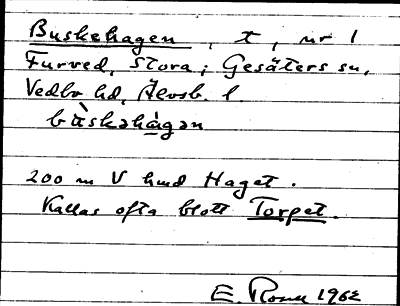 Buskehagen, t, nr 1
Furved, Stora; Gesäters sn,
Vedbo hd, Älvsb. l.
bùskəhàgən
200 m V hmd Haget.
Kallas ofta blott Torpet.
E. 1962